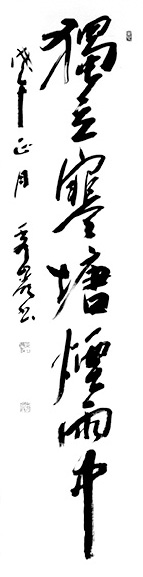 獨立寒塘煙雨中
戊午正月